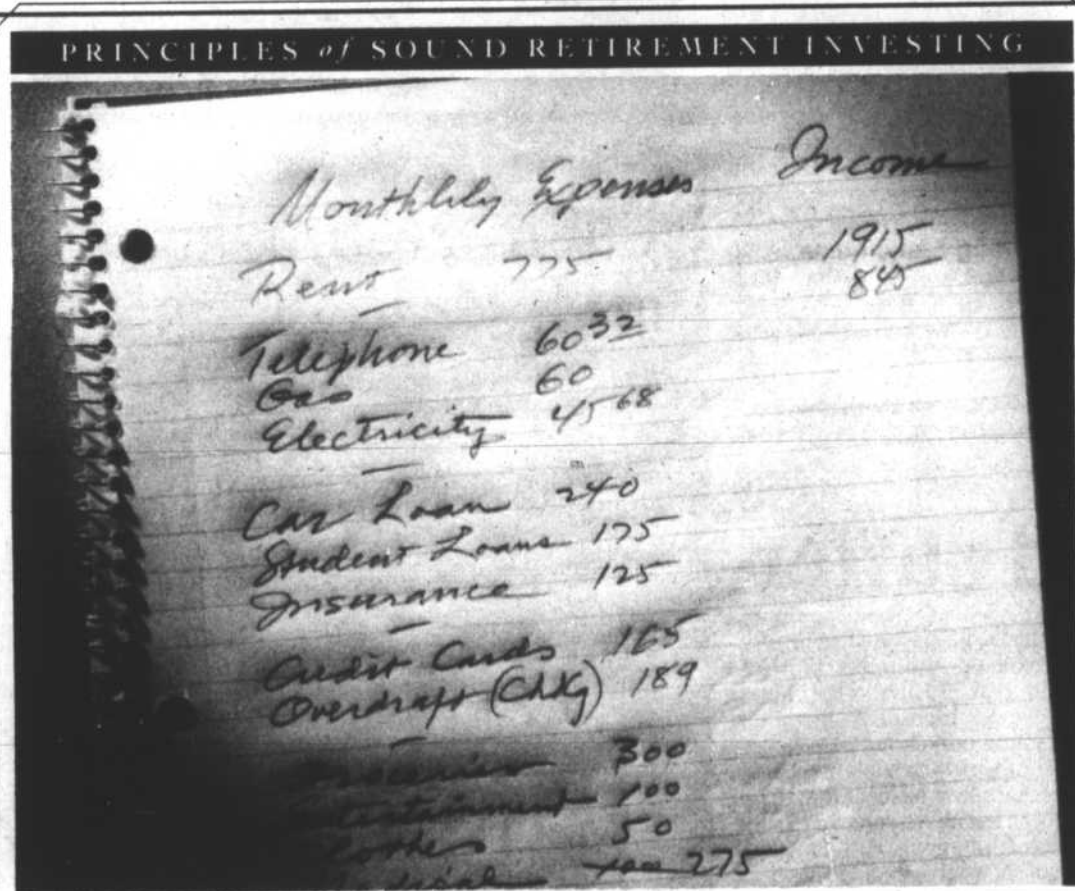 PRINCIPLES of SOUND RETIREMENT INVESTING
Monthlily Expenses Income
Rent 775 1915
845
Telephone 60 32
Gas 60
Electricity 45 68
Car Loan 240
Student Loans 175
Insurance 125
Credit Cards 165
Overdraft (Chkg) 189
Groceries 300
Entertainment 100
Clothes 50
275